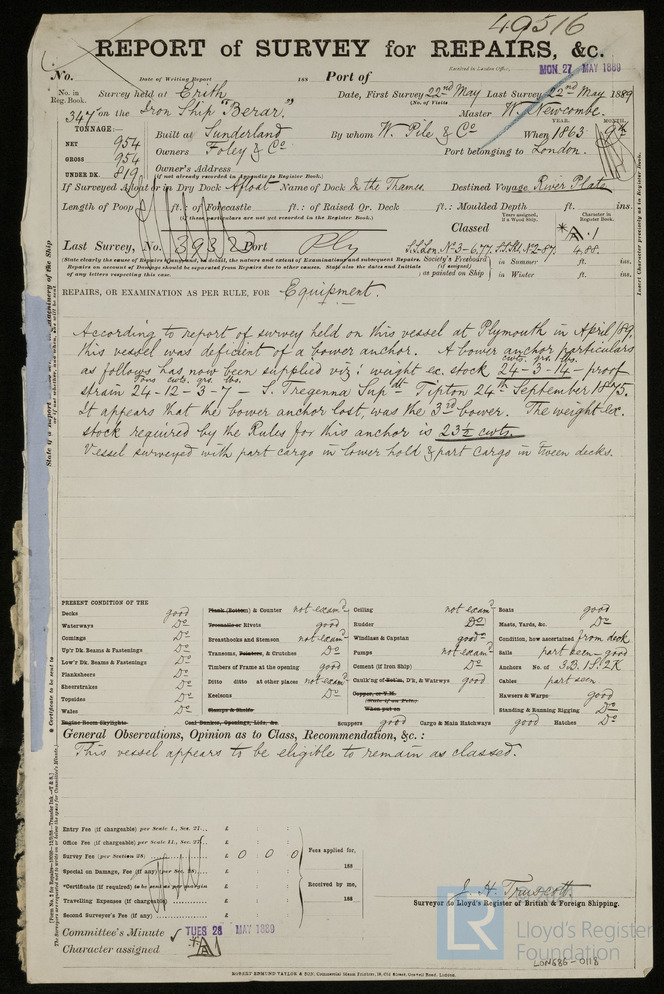 49516
REPORT of SURVEY for REPAIRS, &c.
Received in London Office,
MON. 27 MAY 1889
No. Date of Writing Report 188 Port of
No. in Reg. Book. Survey held at Erith Date, First Survey 22nd May Last Survey 22nd May 1889
(No. of Visits
347 on the Iron Ship "Berar." Master W. Newcombe.
TONNAGE:— YEAR. MONTH.
NET 954 Built at Sunderland By whom W. Pile & Co When 1863 9th
GROSS 954 Owners Foley & Co Port belonging to London.
UNDER DK. 819 Owner's Address
(if not already recorded in Appendix to Register Book.)
If Surveyed Afloat or in Dry Dock Afloat Name of Dock In the Thames. Destined Voyage River Plate
Length of Poop ft.: of Forecastle ft.: of Raised Qr. Deck ft.: Moulded Depth ft. ins.
(If these particulars are not yet recorded in the Register Book.)
Classed
Years assigned, if a Wood Ship. Character in Register Book.
*A.1
Last Survey, No. 3938 Port Ply S.S.Lon. No 3-6,77. S.S.Sld. No 2-87. 4.88.
Society's Freeboard (if assigned) as painted on Ship in Summer ft. ins.
in Winter ft. ins.
REPAIRS, OR EXAMINATION AS PER RULE, FOR Equipment.
According to report of survey held on this vessel at Plymouth in April/89
this vessel was deficient of a bower anchor. A bower anchor particulars
cwts. qrs. lbs.
as follows has now been supplied viz: weight ex. stock 24-3-14 – proof
Tons cwts. qrs. lbs.
strain 24-12-3-7 – S. Tregenna Supdt Tipton 24th September 1875.
It appears that the bower anchor lost, was the 3rd bower. The weight ex.
stock required by the Rules for this anchor is 23½ cwts.
Vessel surveyed with part cargo in lower hold & part cargo in tween decks.
PRESENT CONDITION OF THE
Decks good
Waterways Do
Comings Do
Up'r Dk. Beams & Fastenings Do
Low'r Dk. Beams & Fastenings Do
Planksheers Do
Sheerstrakes Do
Topsides Do
Wales Do
Engine Room Skylights
Plank (Bottom) & Counter not examd
Treenails or Rivets good
Breasthooks and Stemson not examd
Transoms, Pointers, & Crutches Do
Timbers of Frame at the opening good
Ditto ditto at other places not examd
Keelsons Do
Coal Bunker, Openings, Lids, &c.
Scuppers good
Ceiling not examd
Rudder Do
Windlass & Capstan good
Pumps not examd
Cement (if Iron Ship) Do
Caulk'ng of Bot'm, D'k, & Watrwys good
Copper, or Y.M.
When put on
Cargo & Main Hatchways good
Boats good
Masts, Yards, &c. Do
Condition, how ascertained from deck
Sails part seen – good
Anchors No. of 3B.1S.2K
Cables part seen
Hawsers & Warps good
Standing & Running Rigging Do
Hatches Do
General Observations, Opinion as to Class, Recommendation, &c.:
This vessel appears to be eligible to remain as classed.
Entry Fee (if chargeable) per Scale I., Sec. 27... £ : :
Office Fee (if chargeable) per Scale II., Sec. 27... £ : :
Survey Fee (per Section 28) £ 0 : 0 : 0
Special on Damage, Fee (if any) (per Sec. 28) £ : :
*Certificate (if required) to be sent as per margin £ : :
Travelling Expenses (if chargeable) £ : :
Second Surveyor's Fee (if any) £ : :
Fees applied for, 188
Received by me, 188
J. H. Truscott
Surveyor to Lloyd's Register of British & Foreign Shipping.
Committee's Minute TUES 28 MAY 1889
Character assigned *A1
LR Lloyd's Register Foundation
LON686-0118